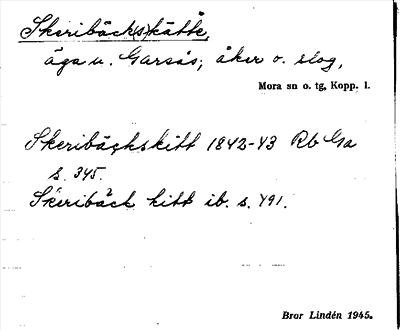 Skeribäck(s)kätte,
äga u. Garsås; åker o. slog,
Mora sn o. tg, Kopp. l.
Skeribäckskitt 1842-43 Rb Ga
s. 345.
Skeribäck kitt ib. s. 491.
Bror Lindén 1945.